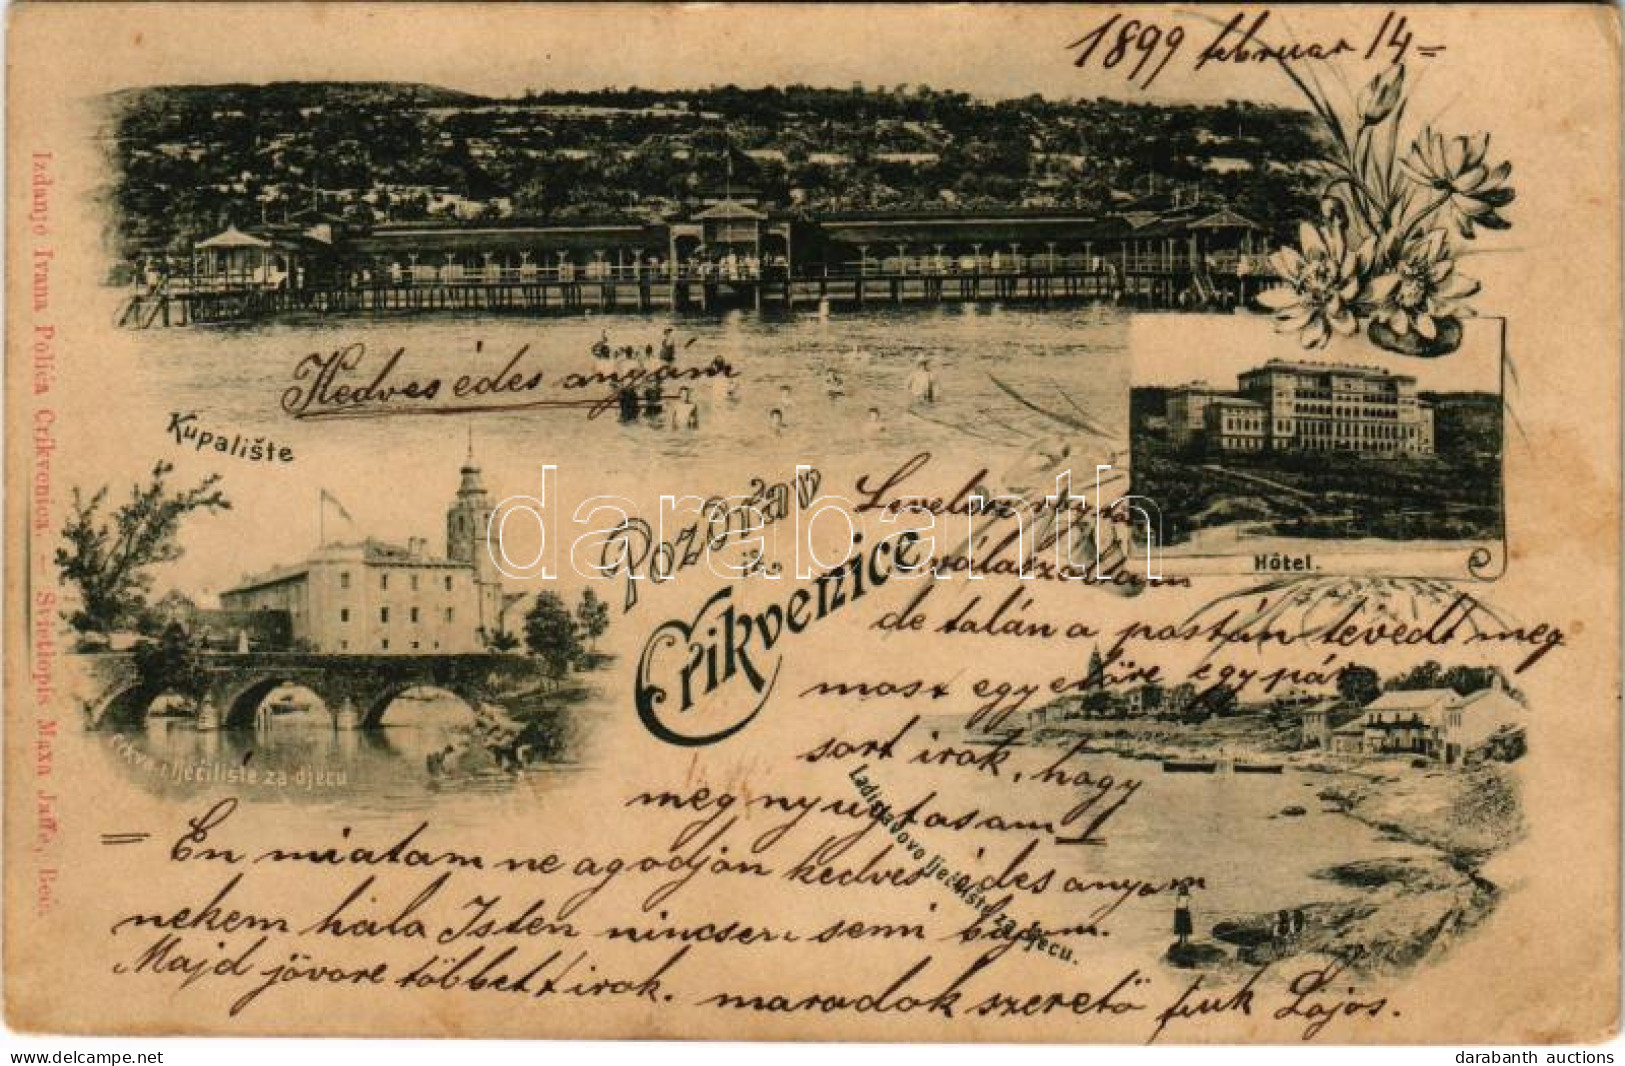 1899 februar 14 =
Kedves édes anyám
Kupalište
Pozdrav
iz
Crikvenice
Hôtel.
crkva i lječilište za djecu
Ladislavovo lječilište za djecu.
válaszoltam
de talán a postán tévedt meg
most egyelőre egy pár
sort irok, hogy
meg nyugtasam
= En miatam ne agodjon kedves édes anyam
nekem hála Isten nincsen semi bajom.
Majd jövore többett irok. maradok szerető fiuk Lajos.
Izdanje Ivana Polića Crikvenica. — Svietlopis Maxa Jaffe, Beč.
darabanth
www.delcampe.net
darabanth auctions